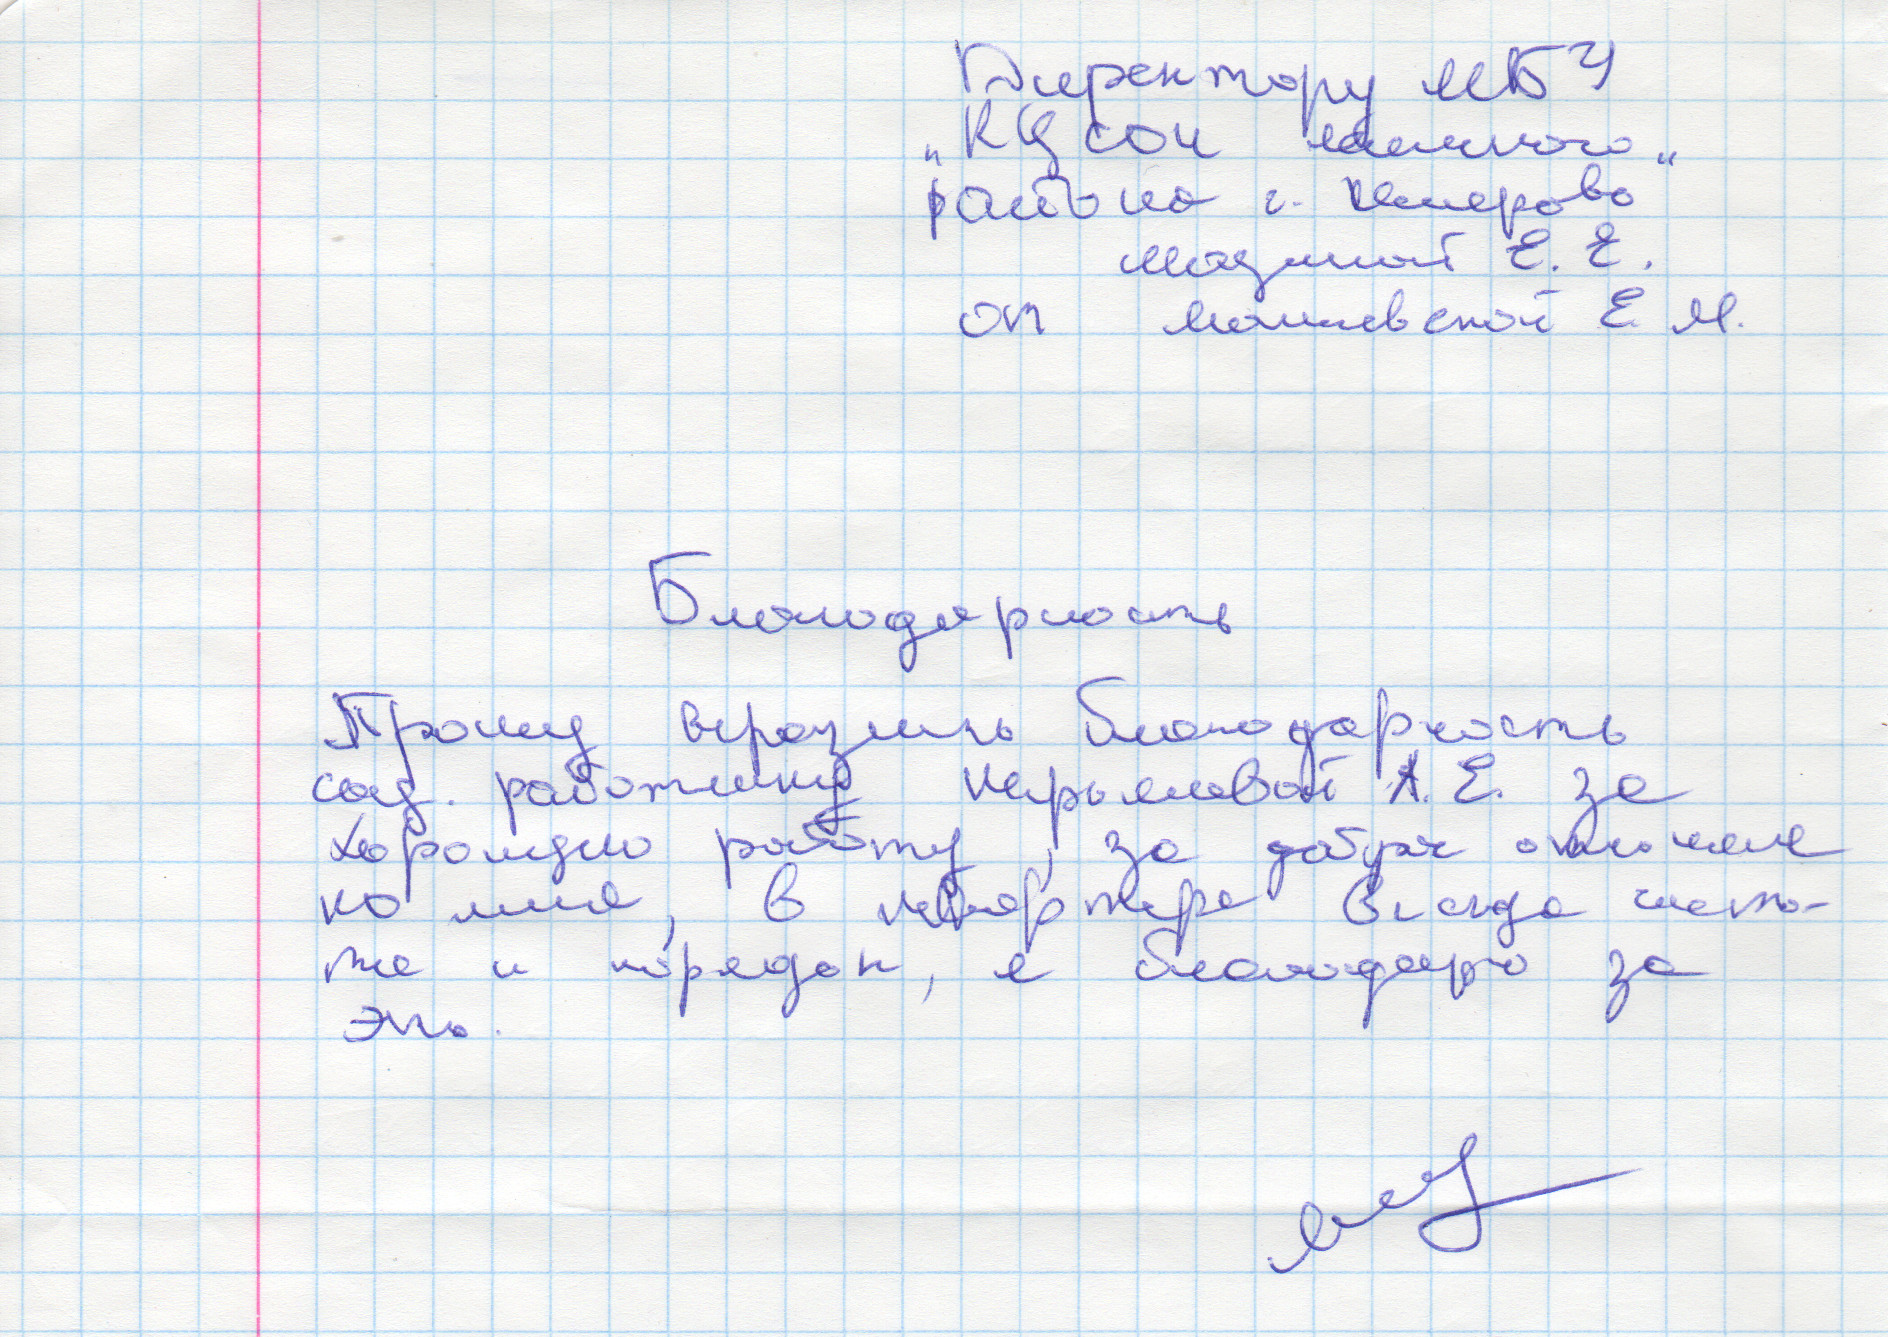 Директору МБУ
„КЦСОН
района г. Кемерово"
Мазиной Е. Е.
от Машевской Е. М.
Благодарность
Прошу выразить благодарность
соц. работнику Карымовой А. Е. за
хорошую работу, за доброе отношение
ко мне, в квартире всегда чисто-
та и порядок, я благодарю за
это.